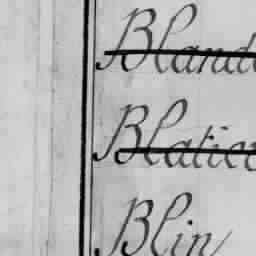 Bland
Blatier
Blin